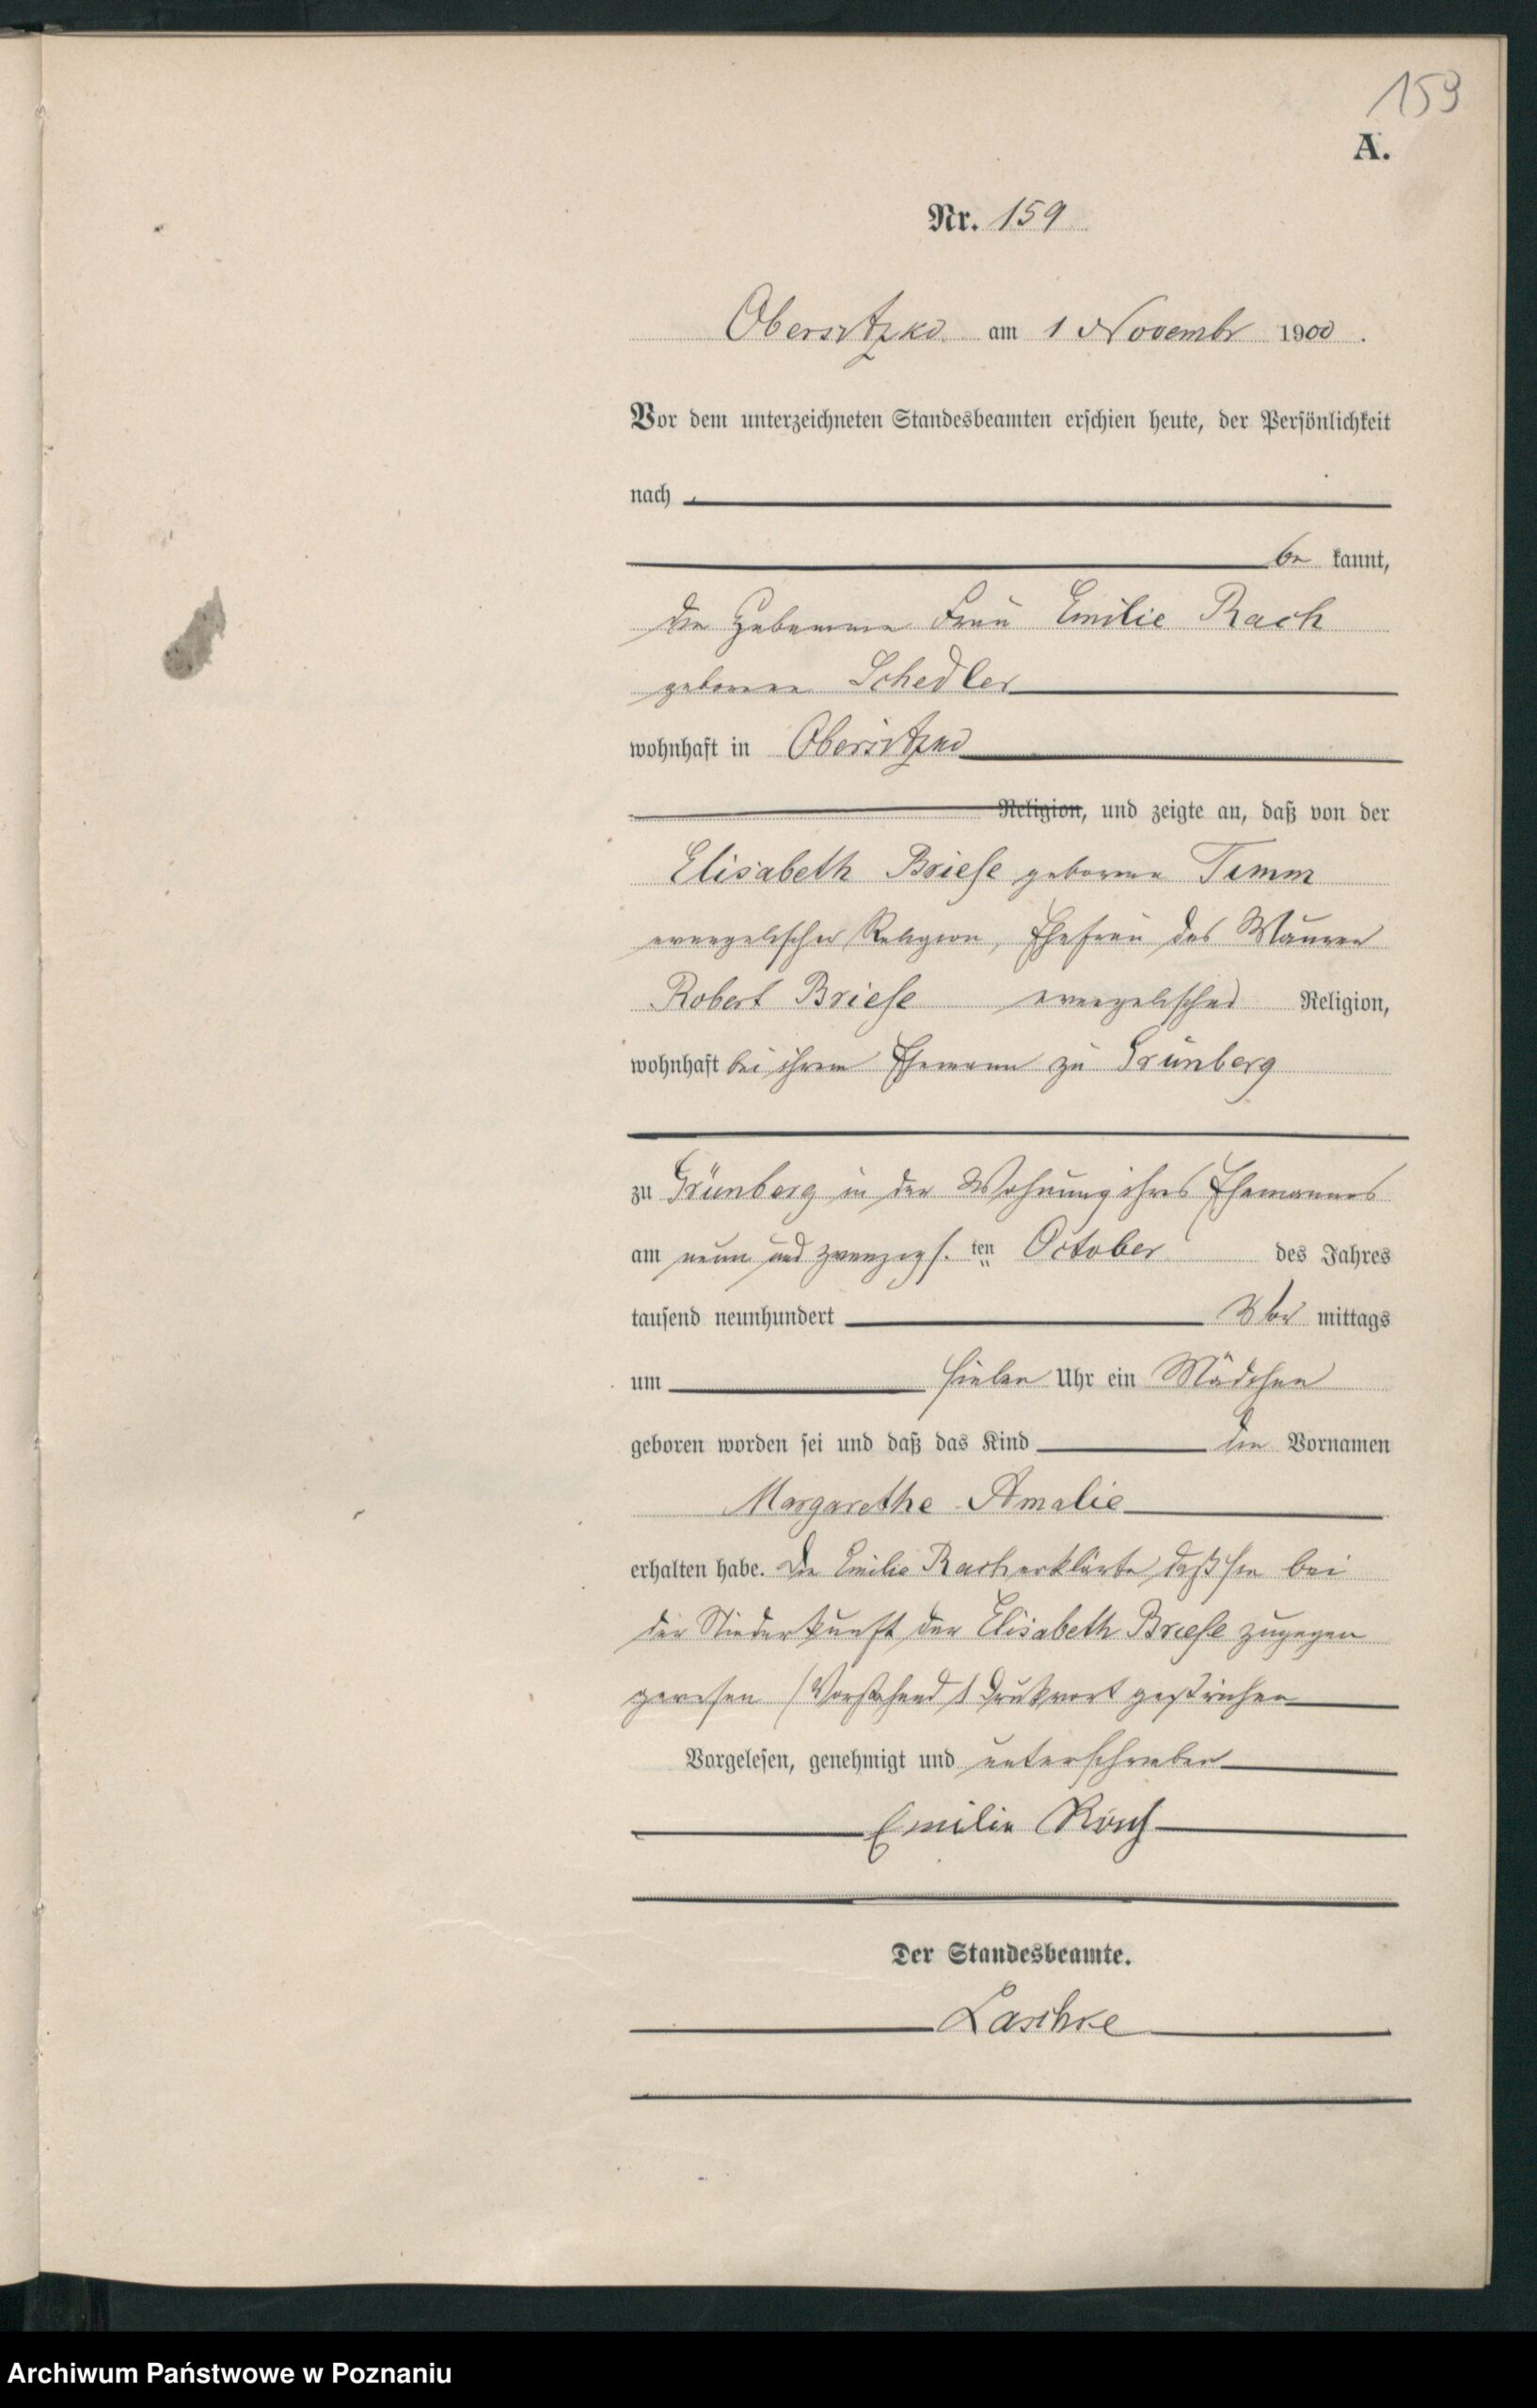 159
A.
Nr. 159
Obersitzko am 1 Novembr 1900.
Vor dem unterzeichneten Standesbeamten erschien heute, der Persönlichkeit
nach
be kannt,
die Hebamme Frau Emilie Rach
geborene Schedler
wohnhaft in Obersitzko
Religion, und zeigte an, daß von der
Elisabeth Briese geborene Timm
evangelischer Religion, Ehefrau des Maurer
Robert Briese evangelischer Religion,
wohnhaft bei ihrem Ehemann zu Grünberg
zu Grünberg in der Wohnung ihres Ehemannes
am neun und zwanzigs. ten October des Jahres
tausend neunhundert Vor mittags
um sieben Uhr ein Mädchen
geboren worden sei und daß das Kind die Vornamen
Margarethe Amalie
erhalten habe. Die Emilie Rach erklärte, daß sie bei
der Niederkunft der Elisabeth Briese zugegen
gewesen (Vorstehend 1 Druckwort gestrichen
Vorgelesen, genehmigt und unterschrieben
Emilie Rach
Der Standesbeamte.
Laschke
Archiwum Państwowe w Poznaniu